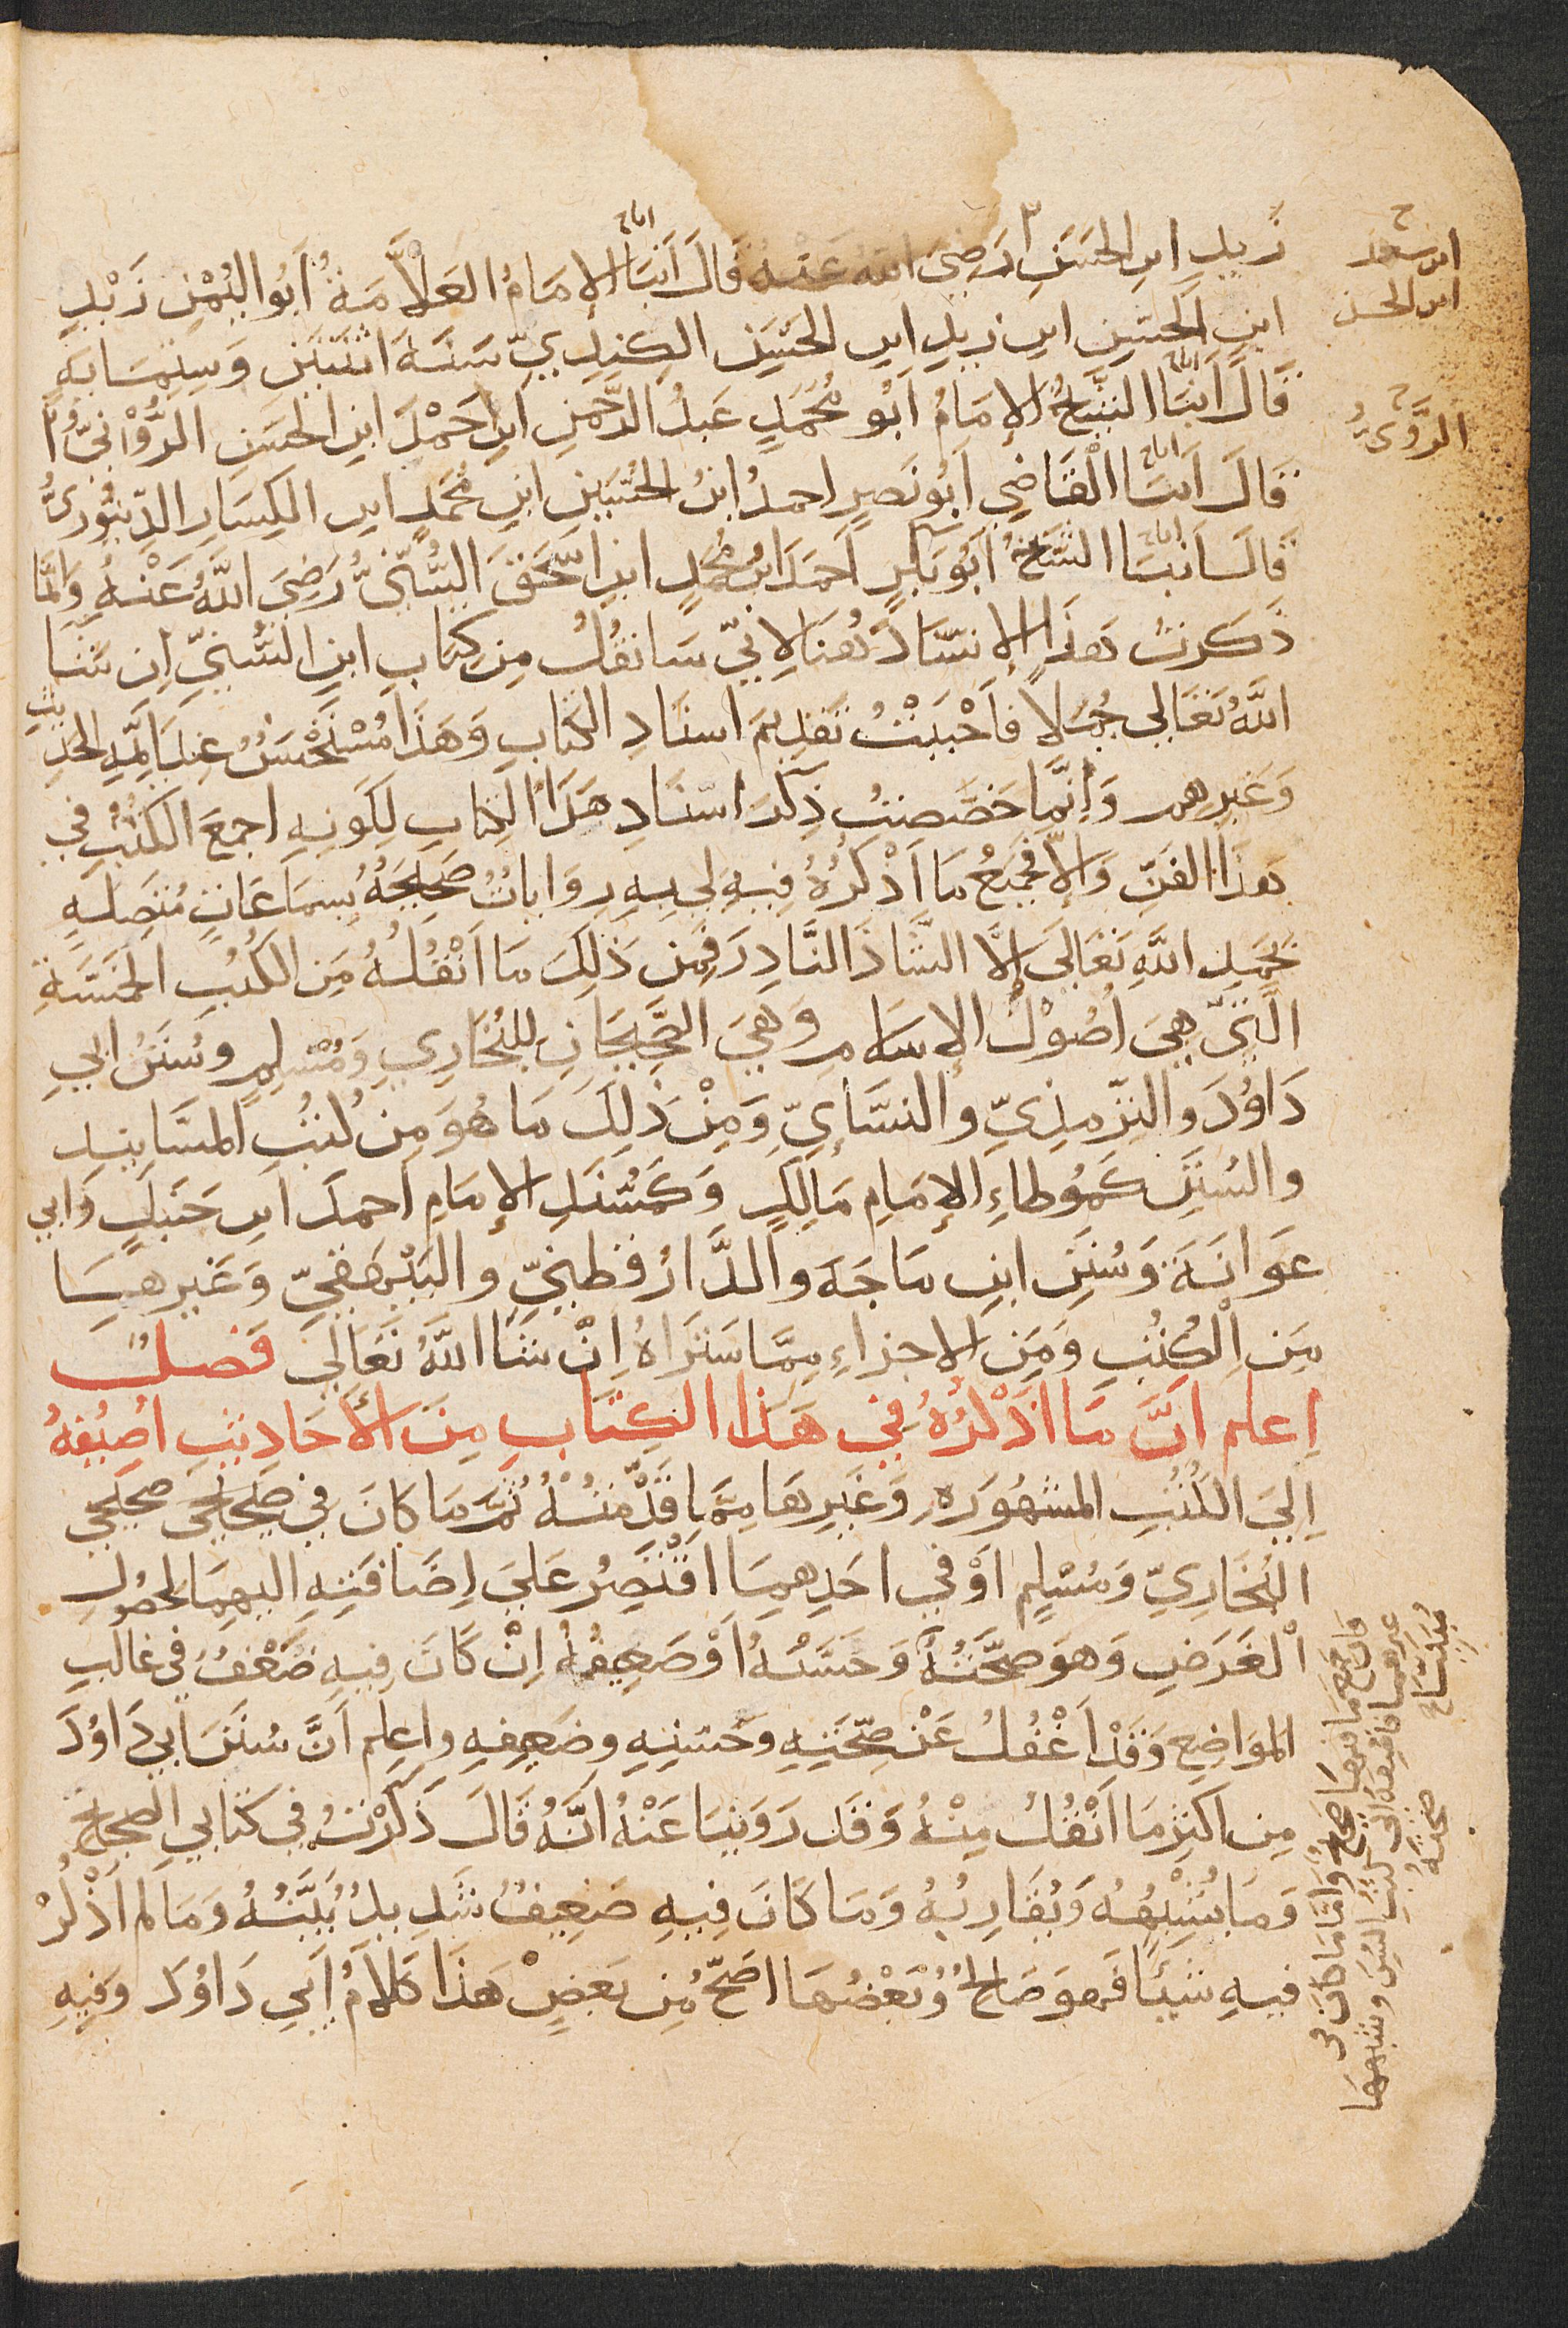 زيد ابن الحسن رضي الله عنه قال انبا الإمام العلاّمة أبو اليُمْن زَيْد
ابن الحسين ابن زيد ابن الحسين الكنديّ سنة اثنتين وستماية
قَالَ انبا الشيخُ الإمامُ ابُو مُحَمَدٍ عبدُ الرحمن ابن احْمَد ابن الحسَن الدُّوْنيُّ
قالَ انبا الْقَاضِي ابُو نَصرٍ احمدُ ابنُ الحُسَين ابن مُحَمَّدٍ ابن الكِسَار الدّينَوريُّ
قال انبا الشيخُ ابُو بَكرٍ احمَد ابن مُحمَّدٍ ابن اسْحَقَ السُّنّيُّ رَضِيَ اللَّهُ عَنْهُ وانَّما
ذكرتُ هَذا الإسنَادَ هُنَا لإنّي سَانقُلُ مِن كِتابِ ابنِ السُّنيِّ إن شَا
اللَّهُ تعَالي جُمَلاً فاَحْبَبْتُ تقدِيمَ اسنَادِ الكتَابِ وَهَذا مُسْتَحْسَنٌ عندَ ايمَّة الحديث
وَغَيرهم وَانَّما خصَّصتُ ذِكرَ اسنَادِ هَذَا الكِتابِ لِكَونِهِ اجمعَ الكتُبِ في
هذا الفَنِّ وَالاّ فجَميعُ مَا اَذْكرُهُ فِيهِ لي بِهِ رِوَاياتٌ صَحِيحَهٌ بسمَاعَاتٍ مُتصِلةٍ
بحَمدِ اللَّهِ تعَالَى إلّا الشَّاذَ النَّادِرَ فمِن ذَلِكَ مَا اَنْقُلُهُ مَن الكُتُبِ الخَمسَةِ
الَّتيّ هِيَ اُصُوْلُ الإسلام وَهيَ الصَّحيحَانِ للبُخَارِيِ وَمُسْلِمٍ وسُنَنُ ابي
دَاوُدَ والترّمذِيّ والنسَّايّ وَمِنْ ذَلِكَ مَا هُوَ مِن كُتبُ المسَانيدِ
والسُنَن كَمُوطاءِ الإمَامِ مَالِكٍ وَكَمُسْنَدِ الإمَامِ احمدَ ابن حَنبلٍ وَابي
عَوانَةَ وَسُنَن ابن مَاجَه والدَّارُقطنيّ والبَيْهَقيّ وَغَيرهَا
مِن الْكُتُبِ وَمَن الاجزاءِ مِمَّا سَتَراهُ اِنْ شَا اللَّهُ تَعَالَي فَصلٌ
اِعلم اَنَّ مَا اذْكرُهُ في هَذا الكِتَابِ مِنَ الأحَاديثِ اُضِيفُهُ
اِلي الكُتُبِ المشهُورَه وَغَيرِهَا مِمَّا قَدَّمْتُهُ ثمّ مَا كانَ في صَحِيحي
البُخَاريّ وَمُسْلِمٍ اوْ في احَدِهِمَا اقْتَصِرُ عَلَي اِضَافَتهِ اليهمَا لحصُولِ
الْغَرَضِ وَهوَ صحَّتُهُ وَحَسَنُهُ اَوْ ضَعِيفُهُ اِنْ كَانَ فِيهِ ضَعْفٌ في غالبِ
المواضِعِ وَقَدْ اَغْفُلُ عَنْ صحَّتهِ وحَسَنِهِ وضَعيفهِ واعلم اَنَّ سُنَنَ ابي دَاوُدَ
مِن اكثرِ مَا اَنْقُلُ مِنْهُ وَقَد رَوَينَا عَنْهُ انَّهُ قَالَ ذَكرْتُ في كتابي الصَّحيحَ
وَمَا يُشْبِهُهُ وَيُقَارِبُهُ وَمَا كَانَ فِيهِ ضَعِيفٌ شَدِيدٌ بَيَّنتُهُ وَمَا لم اَذْكُرْ
فيهِ شَيئًا فهوَ صَالحٌ وَبَعْضُهَا اصَحّ مِن بَعضٍ هَذا كلَامُ اَبي دَاوُدَ وَفيهِ
ابن سعد
ابن الحسن
الدُّونيُّ
فان جميع ما فيهما صحيح وامَّا ما كان في
غيرهما فاضيفه الى كتب السنن وشبهها
مُبيّنًا صحته